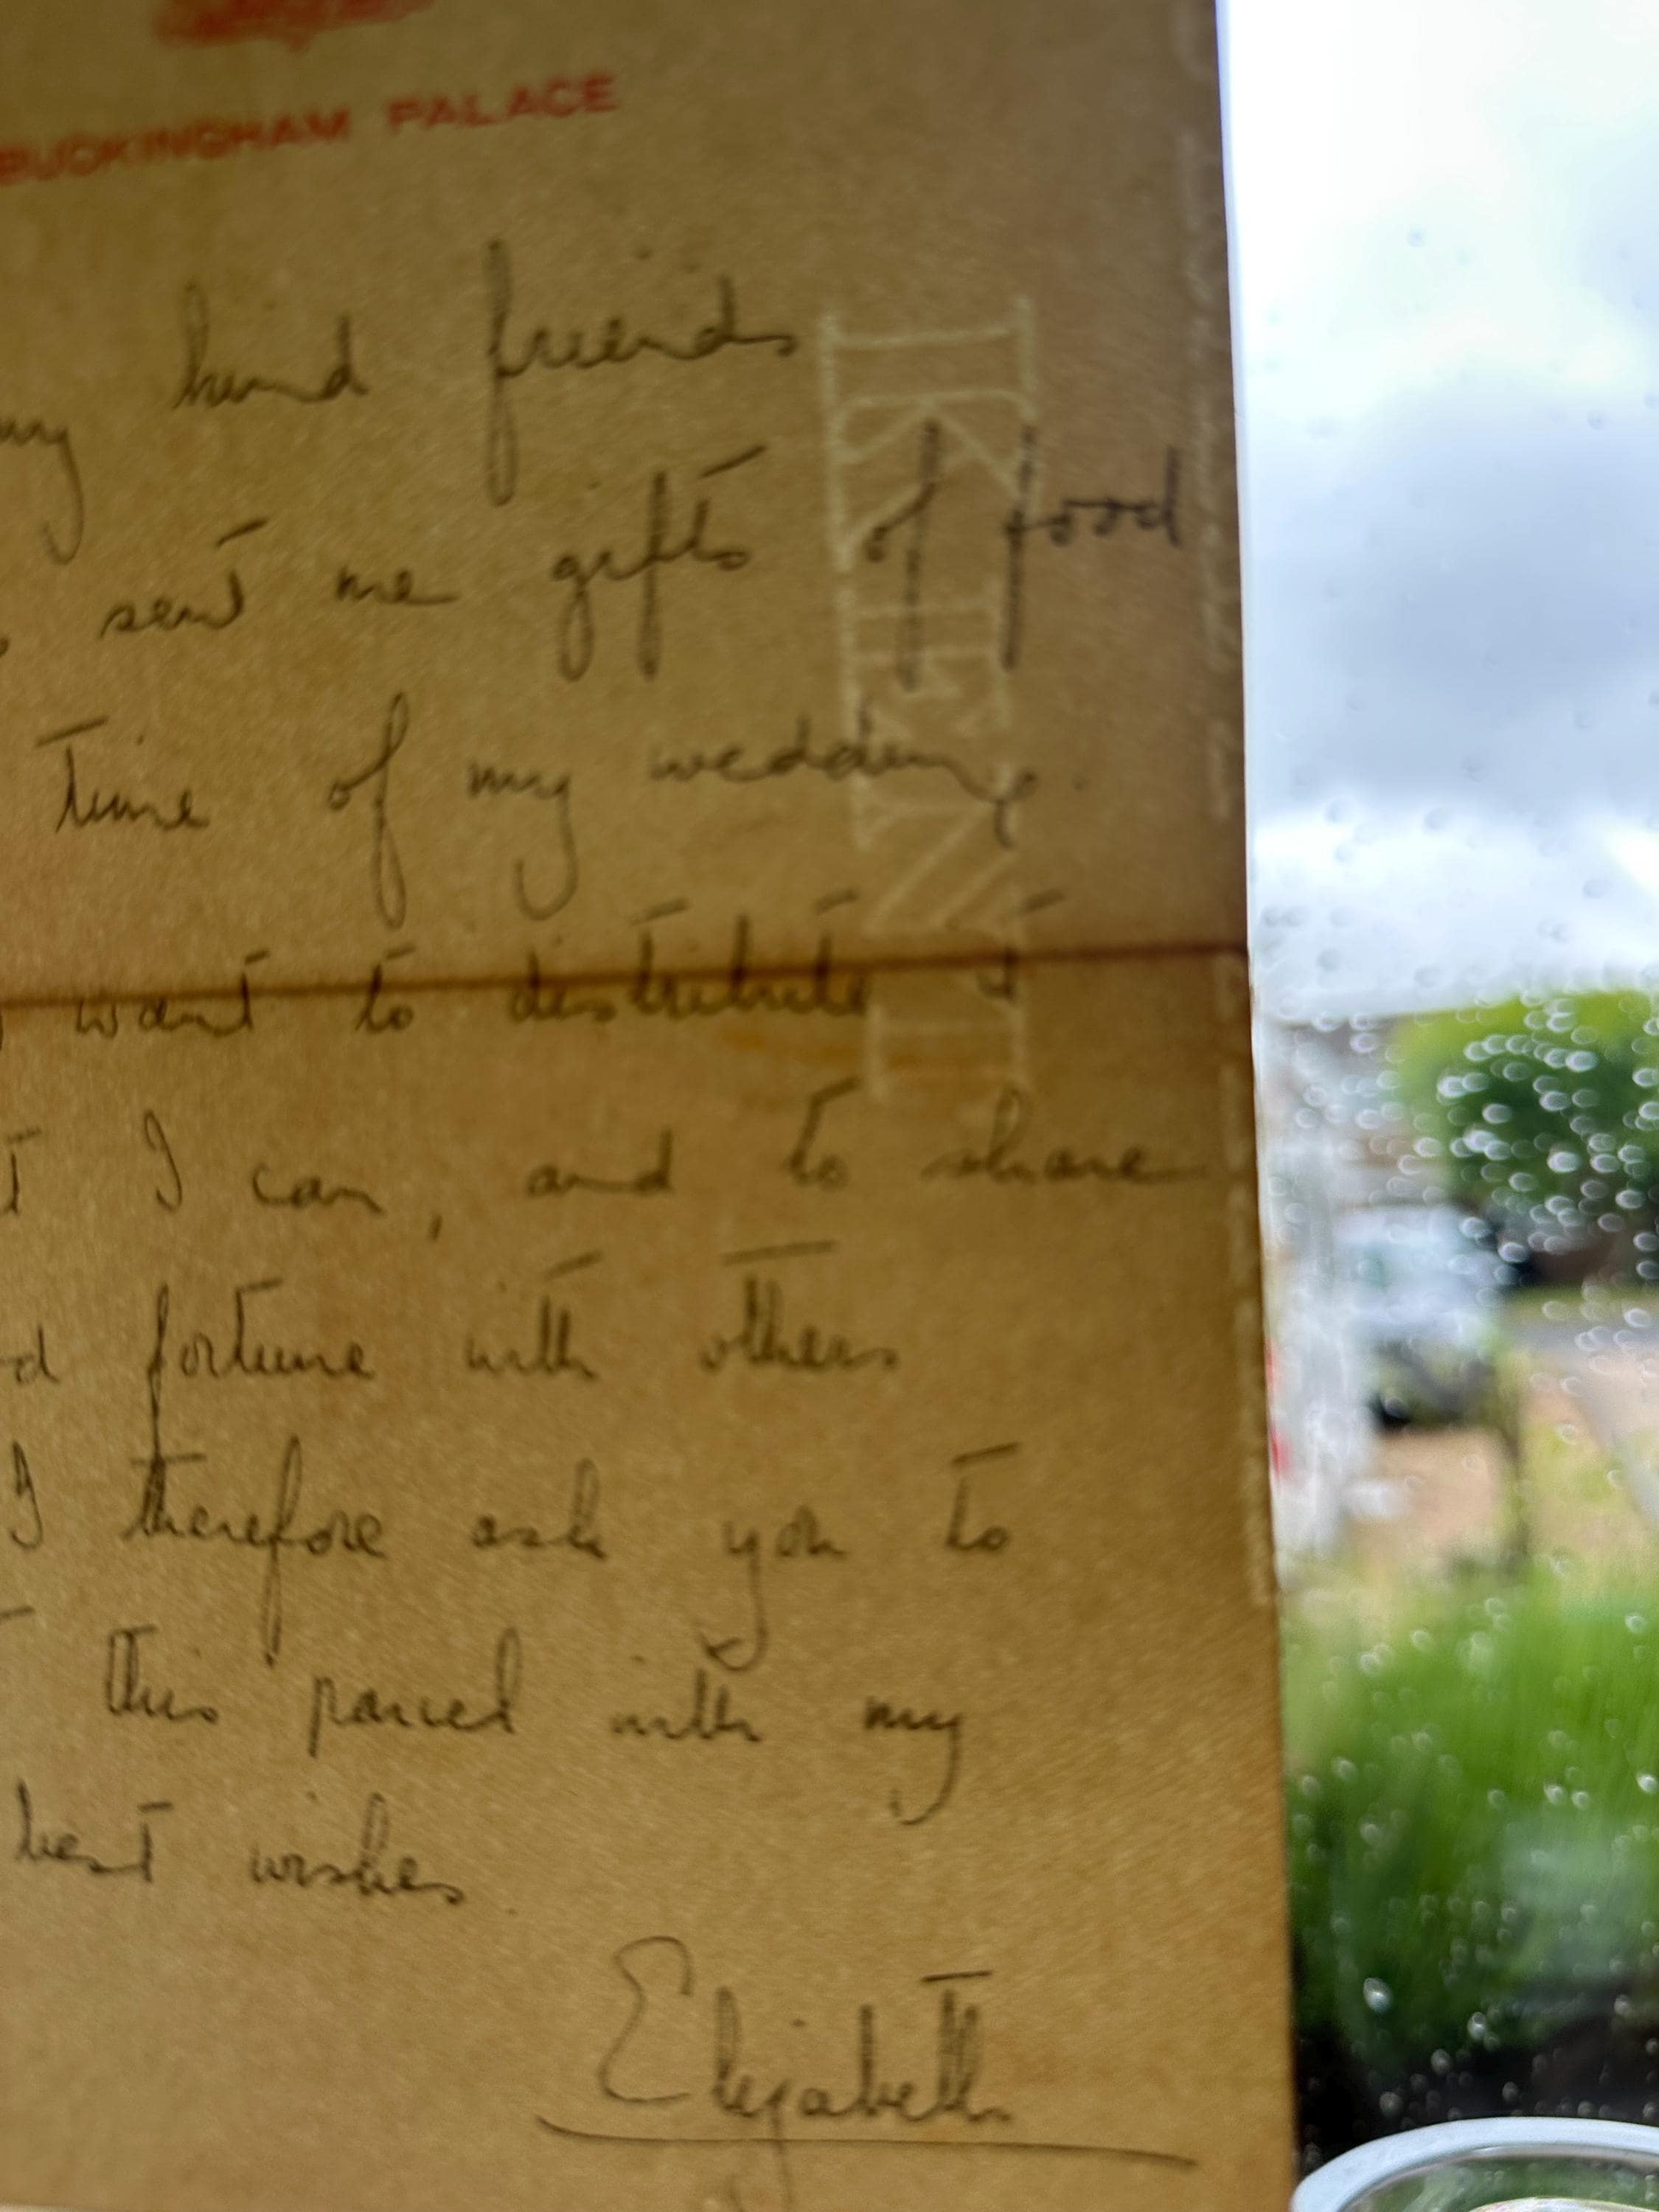 BUCKINGHAM PALACE
kind friends
sent me gifts of food
time of my wedding.
want to distribute it
I can, and to share
fortune with others
I therefore ask you to
this parcel with my
best wishes.
Elizabeth